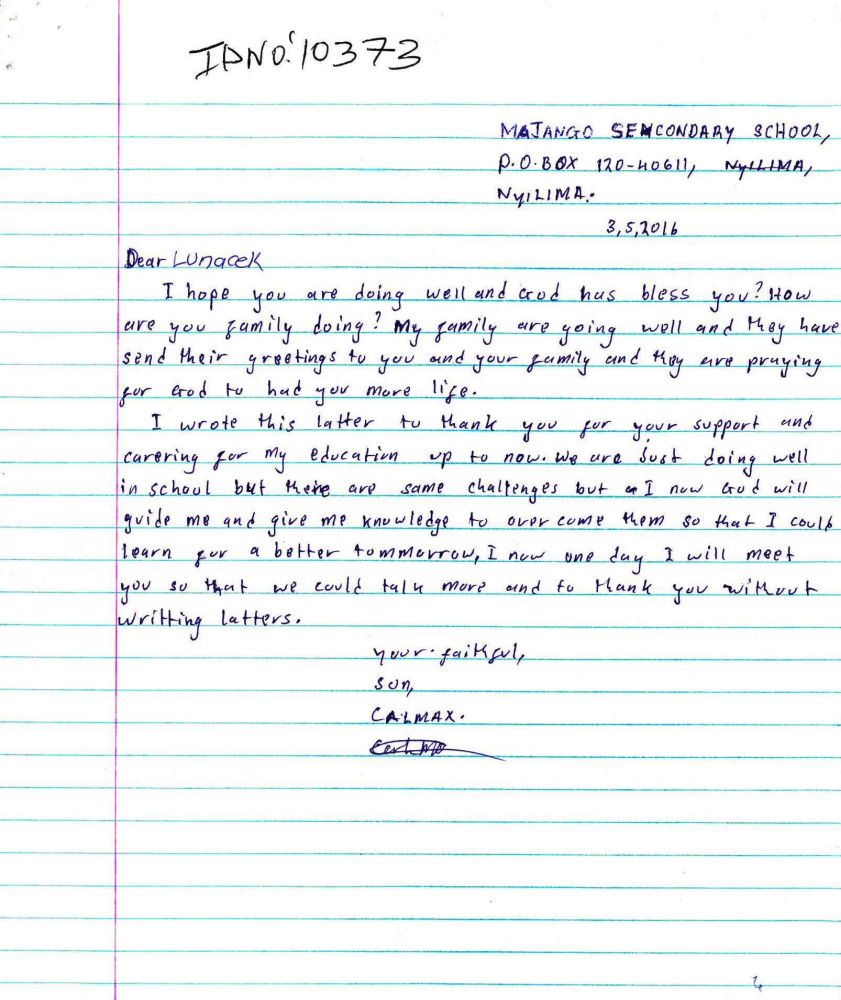 IDNO: 10373
MAJANGO SENCONDARY SCHOOL,
P.O.BOX 120-40611, NYILIMA,
NYILIMA.
3,5,2016
Dear LUNACEK
I hope you are doing well and God has bless you? How
are you family doing? My family are going well and they have
send their greetings to you and your family and they are praying
for God to had you more life.
I wrote this latter to thank you for your support and
carering for my education up to now. We are just doing well
in school but there are same challenges but I now God will
guide me and give me knowledge to over come them so that I could
learn for a better tommorrow, I now one day I will meet
you so that we could talk more and to thank you without
writting latters.
your.faithful,
son,
CALMAX.